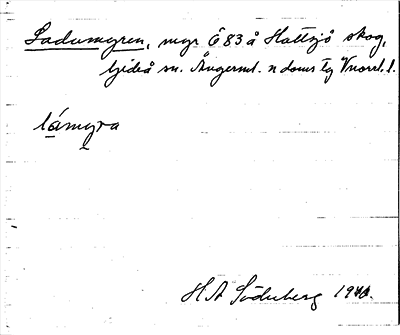 Ladumyren, myr Ö 83 å Hattsjö skog,
sn. Ångerml. n doms Tg Vnorrl. l.
lámyra
H A Söderberg